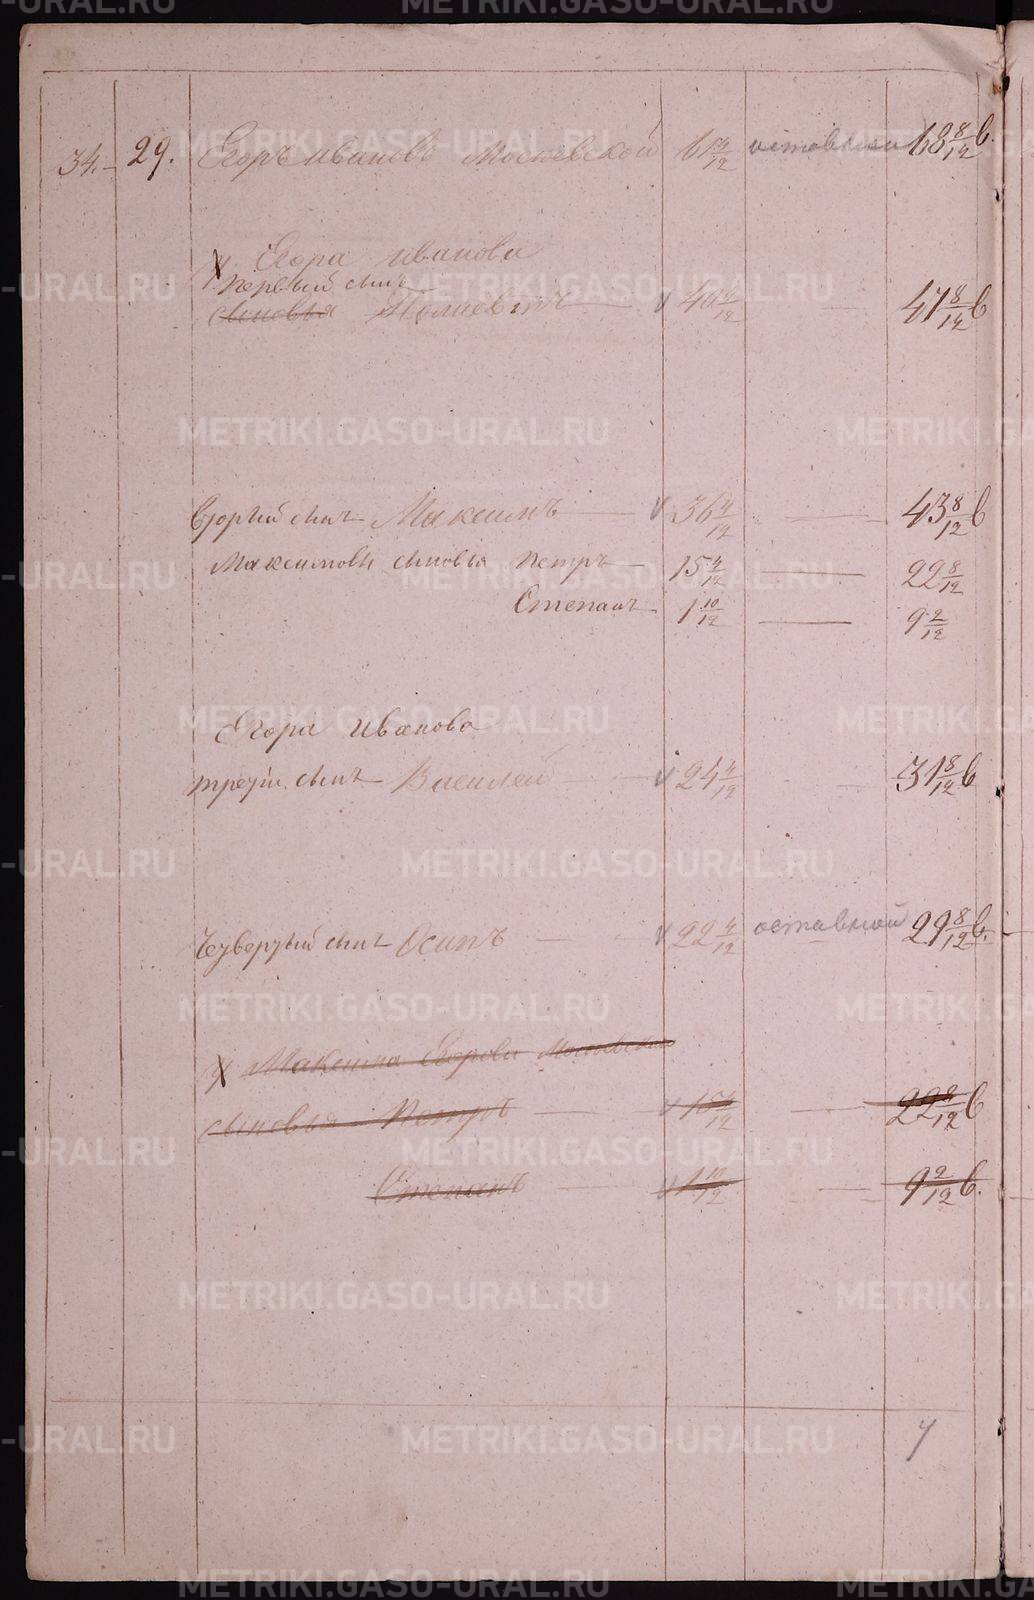 34. 29. Егоръ Ивановъ 61 4/12 отставной 68 8/12
Егора Иванова
первый сынъ
сыновья 40 4/12 47 8/12
Вторый сынъ Максимъ 36 4/12 43 8/12
Максимовы сыновья Петръ 15 4/12 22 8/12
Степанъ 1 10/12 9 2/12
Егора Иванова
третiй сынъ Василей 24 4/12 31 8/12
Чтвертый сынъ Осипъ 22 4/12 отставной 29 8/12
Максима Егорова
сыновья Петръ 15 4/12 22 8/12
Степанъ 1 10/12 9 2/12
METRIKI.GASO-URAL.RU